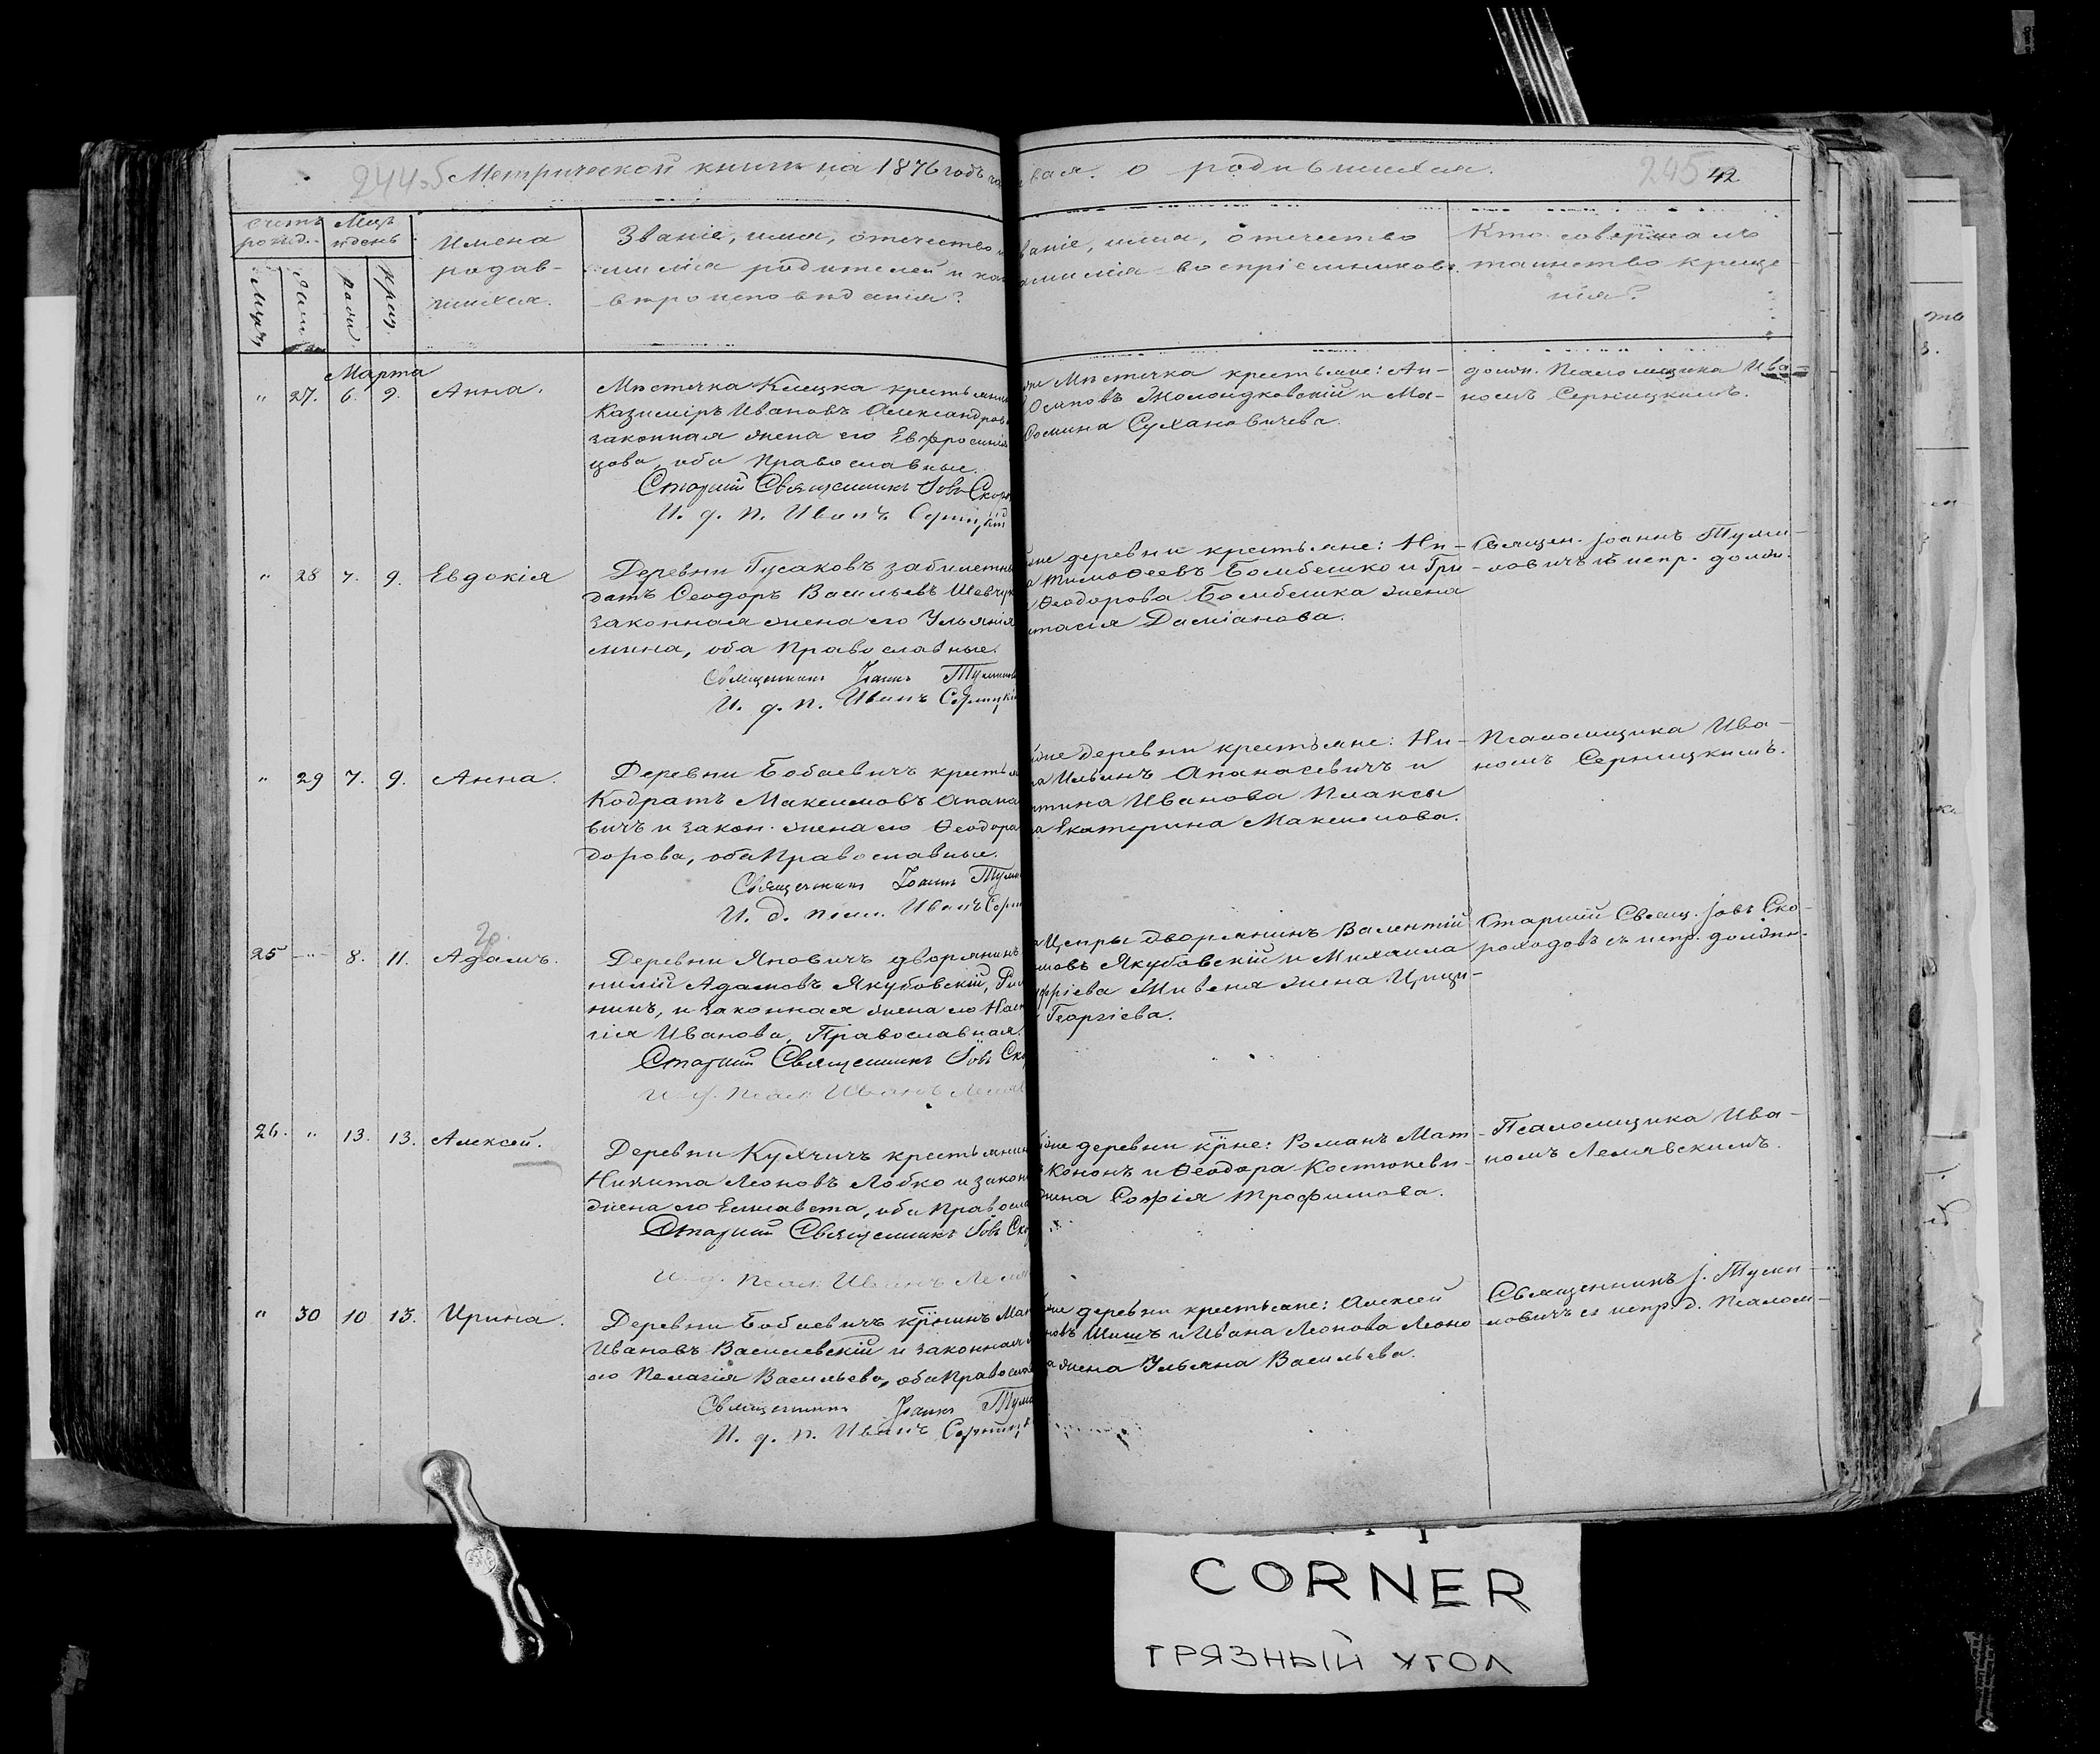 244об Метрической книги на 1876 годъ ча
вая. о родившихся.
245 42
Счетъ рожд.
Мѣц. и день
Муж.
Жен.
рожд.
крещ.
Имена
родив-
шихся.
Званіе, имя, отечество и
фамилія родителей и как
вѣроисповѣданія?
званіе, имя, отечество
фамилія воспріемниковъ.
Кто совершалъ
таинство креще-
нія?
Марта
" 27. 6. 9. Анна.
Мѣстечка Клецка крестьянин
Казиміръ Ивановъ Александров
законная жена его Евфросинія
цова, оба Православные.
Старшій Священникъ Іовъ Скоро
И. д. п. Иванъ Серницкі
Мѣстечка крестьяне: Ан-
Осиповъ и Ма-
Сухановичева.
должн. Псаломщика Ива-
номъ Серницкимъ.
" 28 7. 9. Евдокія
Деревни Гусаковъ забилетны
датъ Ѳеодоръ Васильевъ Шевчук
законная жена его Ульянія
мина, оба Православные.
Священникъ Іоаннъ Тумилов
И. д. п. Иванъ Серницкі
деревни крестьяне: Ни-
а Тимоѳеевъ Бомбешко и Гри-
Ѳеодорова Бомбешка жена
стасія Даміанова.
Священ. Іоаннъ Туми-
ловичъ съ испр. должн.
" 29 7. 9. Анна.
Деревни Бабаевичъ крестьян
Кодратъ Максимовъ Апана
вичъ и закон. жена его Ѳеодора
дорова, оба Православные.
Священникъ Іоаннъ Туми
И. д. псал. Иванъ Серн
деревни крестьяне: Ни-
Ильинъ Апанасевичъ и
Иванова Плаксы
а Екатерина Максимова.
Псаломщика Ива-
номъ Серницкимъ.
25 - " - 8. 11. Адамъ.
Деревни Яновичъ дворянинъ
Адамовъ Якубовскій, Рим
нинъ, и законная жена его Наст
сія Иванова, Православная.
Старшій Священникъ Іовъ Ско
И. д. псал. Иванъ Лемяв
Цепры дворянинъ Валентій
Якубовскій и Михаила
жена
Георгіева.
Старшій Свящ. Іовъ Ско-
роходовъ съ испр. должн.
26. " 13. 13. Алексей.
Деревни Кухчичъ крестьянин
Никита Леоновъ Лобко и закон
жена его Елисавета, оба Правосла
Старшій Священникъ Іовъ Ско
И. д. псал. Иванъ Лемяв
деревни кр̃не: Романъ Мат
Кононъ и Ѳеодора Костюкеви-
жена Софія Трофимова.
Псаломщика Ива-
номъ Лемявскимъ.
" 30 10 13. Ирина.
Деревни Бабаевичъ кр̃нинъ Ма
Ивановъ Василевскій и законная
его Пелагія Васильева, оба Правосла
Священникъ Іоаннъ Туми
И. д. п. Иванъ Серницк
деревни крестьяне: Алексей
новъ Шишъ и Ивана Леонова Леоно
жена Ульяна Васильева.
Священникъ І. Туми-
ловичъ съ испр. д. Псалом-
CORNER
ГРЯЗНЫЙ УГОЛ